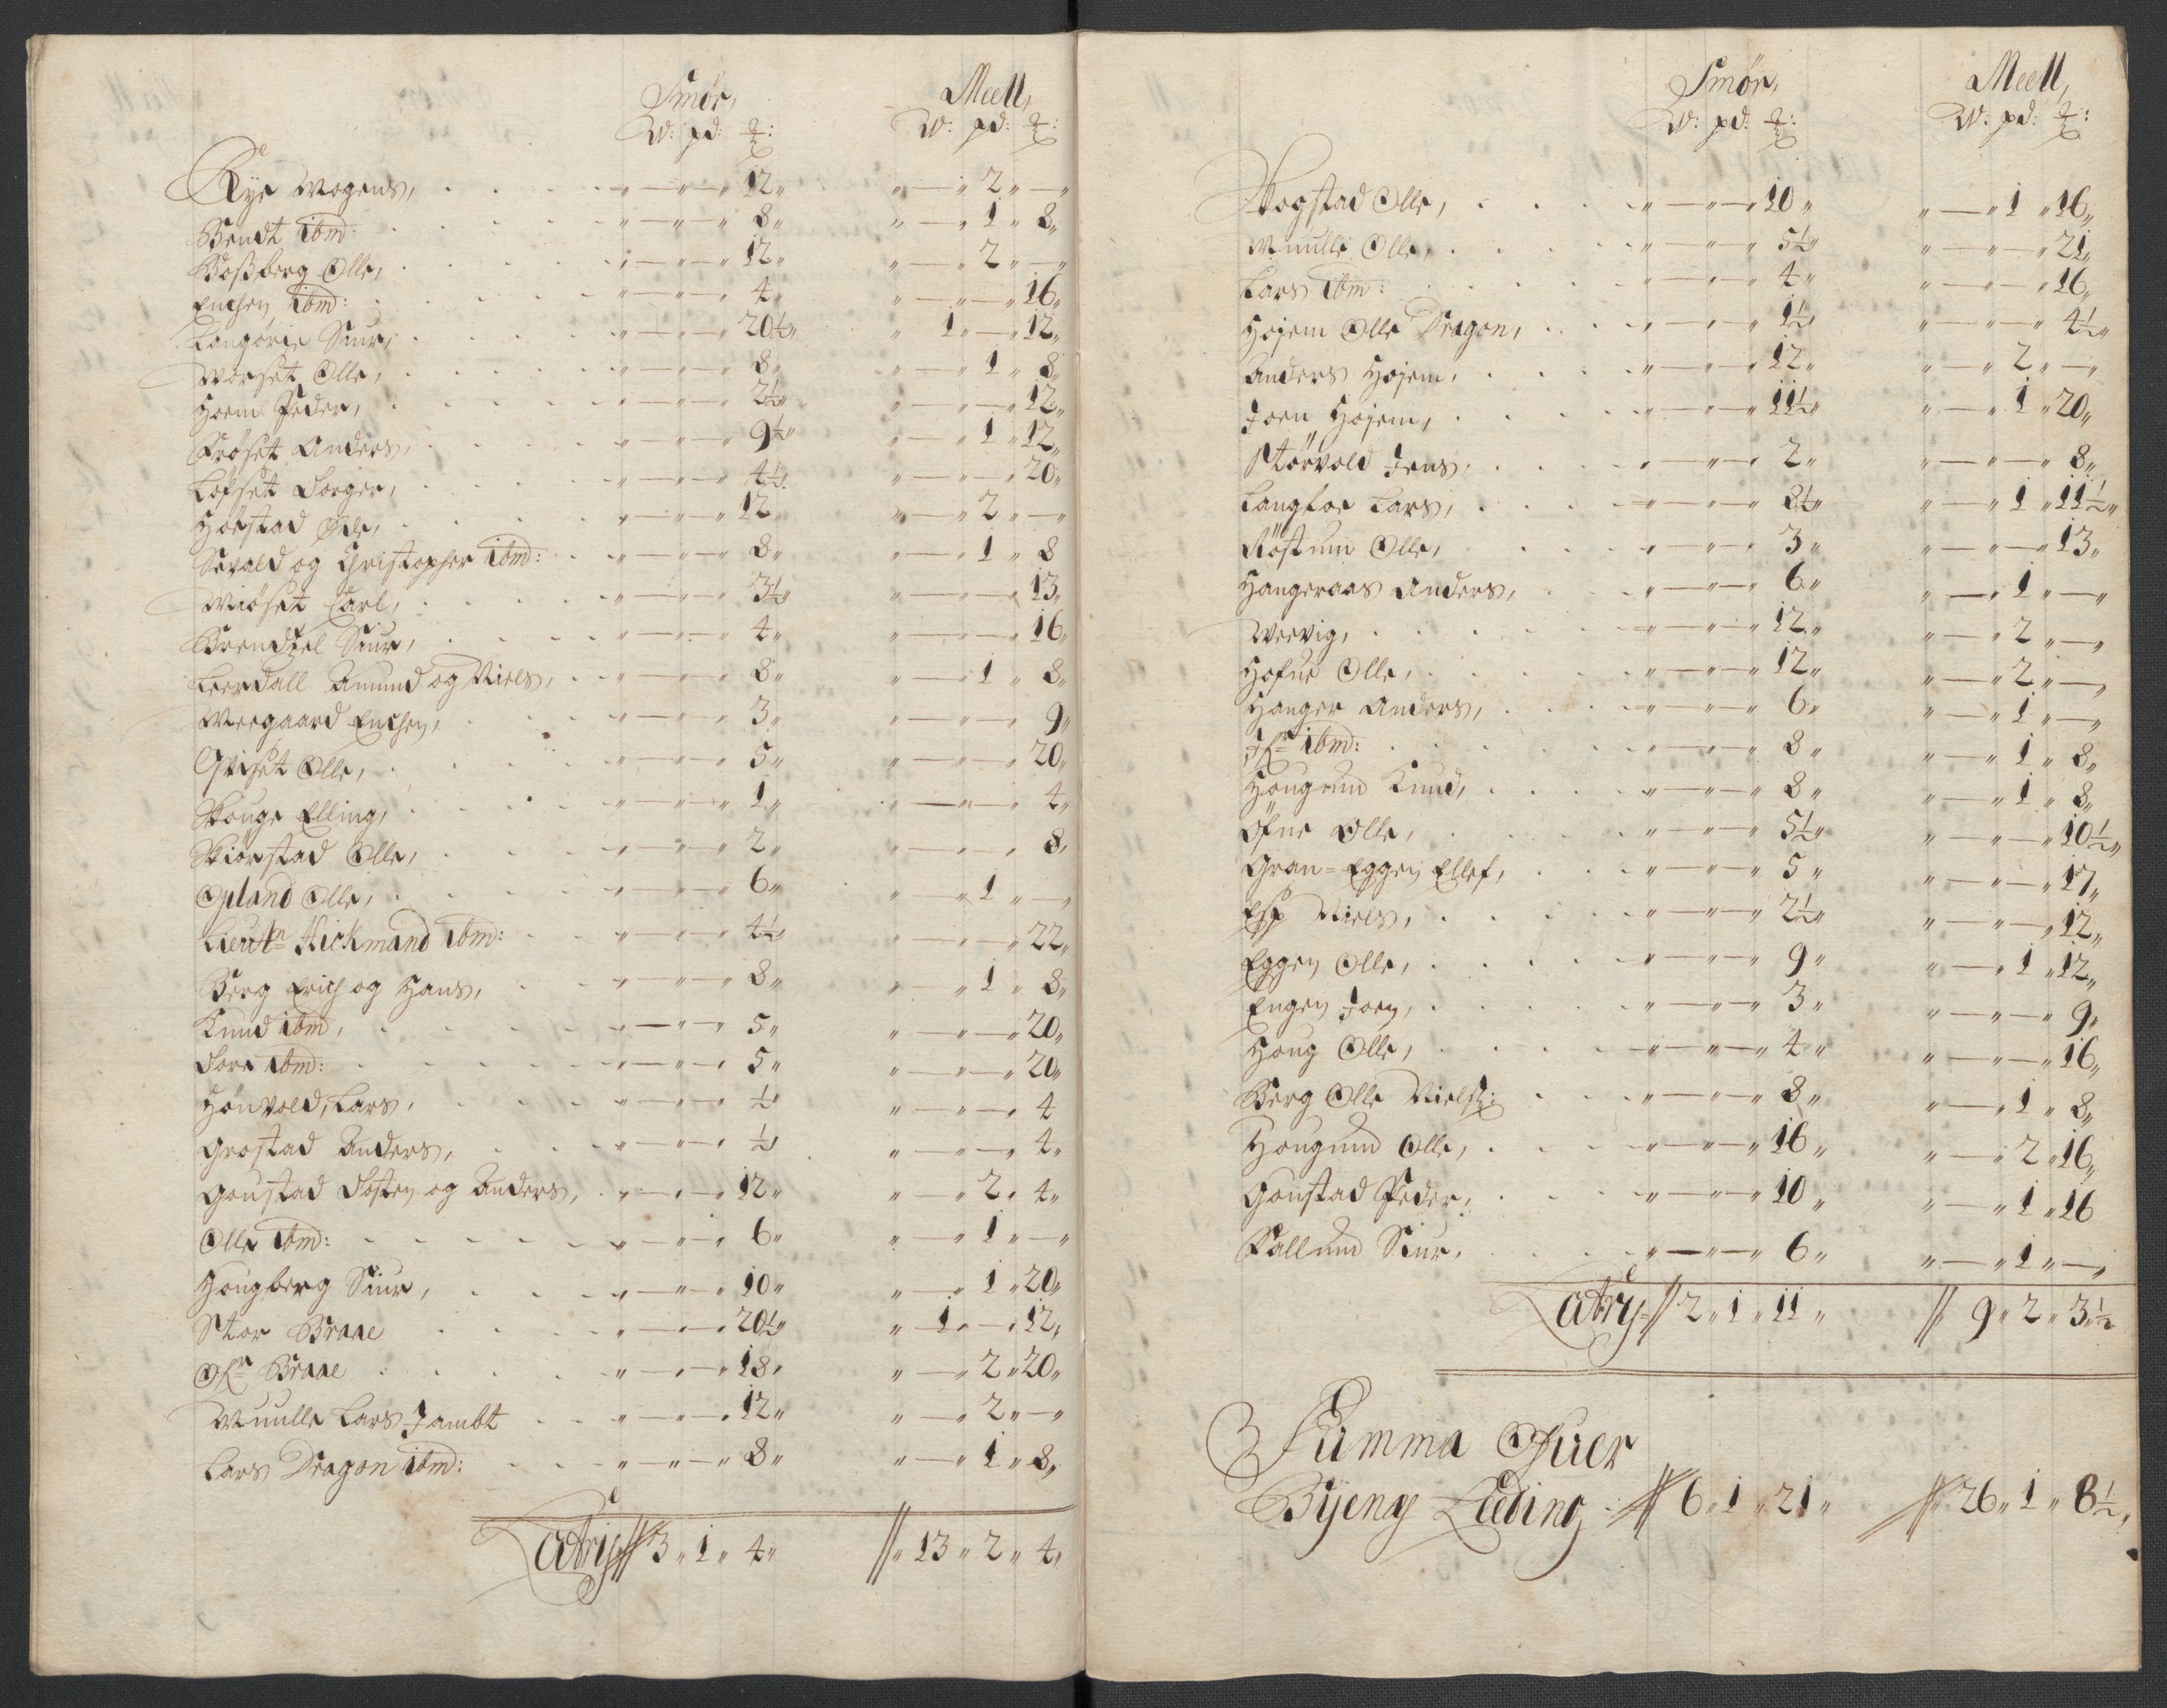 Smør, Meell,
W: pd: ℔: W: pd: ℔:
Rye Mogens, " — " — " 12 " " — " 2 " — "
Bendt ibm: " — " — " 8 " " — " 1 " 8 "
Boßberg Olle, " — " — " 12 " " — " 2 " — "
Enchen ibm: " — " — " 4 " " — " — " 16 "
Langørie Siur, " — " — " 20½ " " 1 " — " 12 "
Worset Olle, " — " — " 8 " " — " 1 " 8 "
Hoem Peder, " — " — " 2½ " " — " — " 12 "
Frøset Anders, " — " — " 9½ " " — " 1 " 12 "
Løfset Torger, " — " — " 4½ " " — " — " 20 "
Hofstad Ole, " — " — " 12 " " — " 2 " — "
Sevald og Christopher ibm: " — " — " 8 " " — " 1 " 8
Miøset Carl, " — " — " 3½ " " — " — " 13 "
Brendsel Siur, " — " — " 4 " " — " — " 16 "
Leerdall Amund og Niels, " — " — " 8 " " — " 1 " 8 "
Meegaard Enchen, " — " — " 3 " " — " — " 9 "
Gviset Olle, " — " — " 5 " " — " — " 20 "
Skouge Elling, " — " — " 1 " " — " — " 4 "
Skiørstad Olle, " — " — " 2 " " — " — " 8 "
Opland Olle, " — " — " 6 " " — " 1 " — "
Lieutn Hickmand ibm: " — " — " 4½ " " — " — " 22 "
Berg Erich og Hans, " — " — " 8 " " — " 1 " 8 "
Knud ibm, " — " — " 5 " " — " — " 20 "
Tore ibm: " — " — " 5 " " — " — " 20 "
Hønvold, Lars, " — " — " ½ " " — " — " 4
Grostad Anders, " — " — " ½ " " — " — " 4 "
Goustad Tosten og Anders, " — " — " 12 " " — " 2 " 4 "
Olle ibm: " — " — " 6 " " — " 1 " — "
Hougberg Siur, " — " — " 10 " " — " 1 " 20 "
Stor Braae " — " — " 20½ " " 1 " — " 12 "
Øfr Braae " — " — " 18 " " — " 2 " 20 "
Muulle Lars Jambt " — " — " 12 " " — " 2 " — "
Lars Dragon ibm: " — " — " 8 " " — " 1 " 8 "
Latrij // 3 " 1 " 4 " // " 13 " 2 " 4 "
Smør, Meell,
W: pd: ℔: W: pd: ℔:
Skogstad Olle, " — " — " 10 " " — " 1 " 16 "
Muulle Olle, " — " — " 5½ " " — " — " 21 "
Lars ibm: " — " — " 4 " " — " — " 16 "
Højem Olle Dragon, " — " — " 1½ " " — " — " 4½ "
Anders Højem, " — " — " 12 " " — " 2 " — "
Joen Høyem, " — " — " 11½ " " — " 1 " 20 "
Størvold Jens, " — " — " 2 " " — " — " 8 "
Langloe Lars, " — " — " 8½ " " — " 1 " 11½ "
Røstum Olle, " — " — " 3 " " — " — " 13 "
Hangeraas Anders, " — " — " 6 " " — " 1 " — "
Weevig, " — " — " 12 " " — " 2 " — "
Hofue Olle, " — " — " 12 " " — " 2 " — "
Hanger Anders, " — " — " 6 " " — " 1 " — "
ibm: " — " — " 8 " " — " 1 " 8 "
Hougum Knud, " — " — " 8 " " — " 1 " 8 "
Øfne Olle, " — " — " 5½ " " — " — " 10½ "
Gran=Eggen Ellef, " — " — " 5 " " — " — " 17 "
Esp Niels, " — " — " 2½ " " — " — " 12 "
Eggen Olle, " — " — " 9 " " — " 1 " 12 "
Engen Joen, " — " — " 3 " " — " — " 9 "
Houg Olle, " — " — " 4 " " — " — " 16 "
Berg Olle Nielß: " — " — " 8 " " — " 1 " 8 "
Hougum Olle, " — " — " 16 " " — " 2 " 16 "
Goustad Peder, " — " — " 10 " " — " 1 " 16
Fallum Siur, " — " — " 6 " " — " 1 " — "
Latrij // 2 " 1 " 11 " // 9 " 2 " 3½
Summa Ofuer
Bÿens Leding // 6 " 1 " 21 " // 26 " 1 " 8½ "